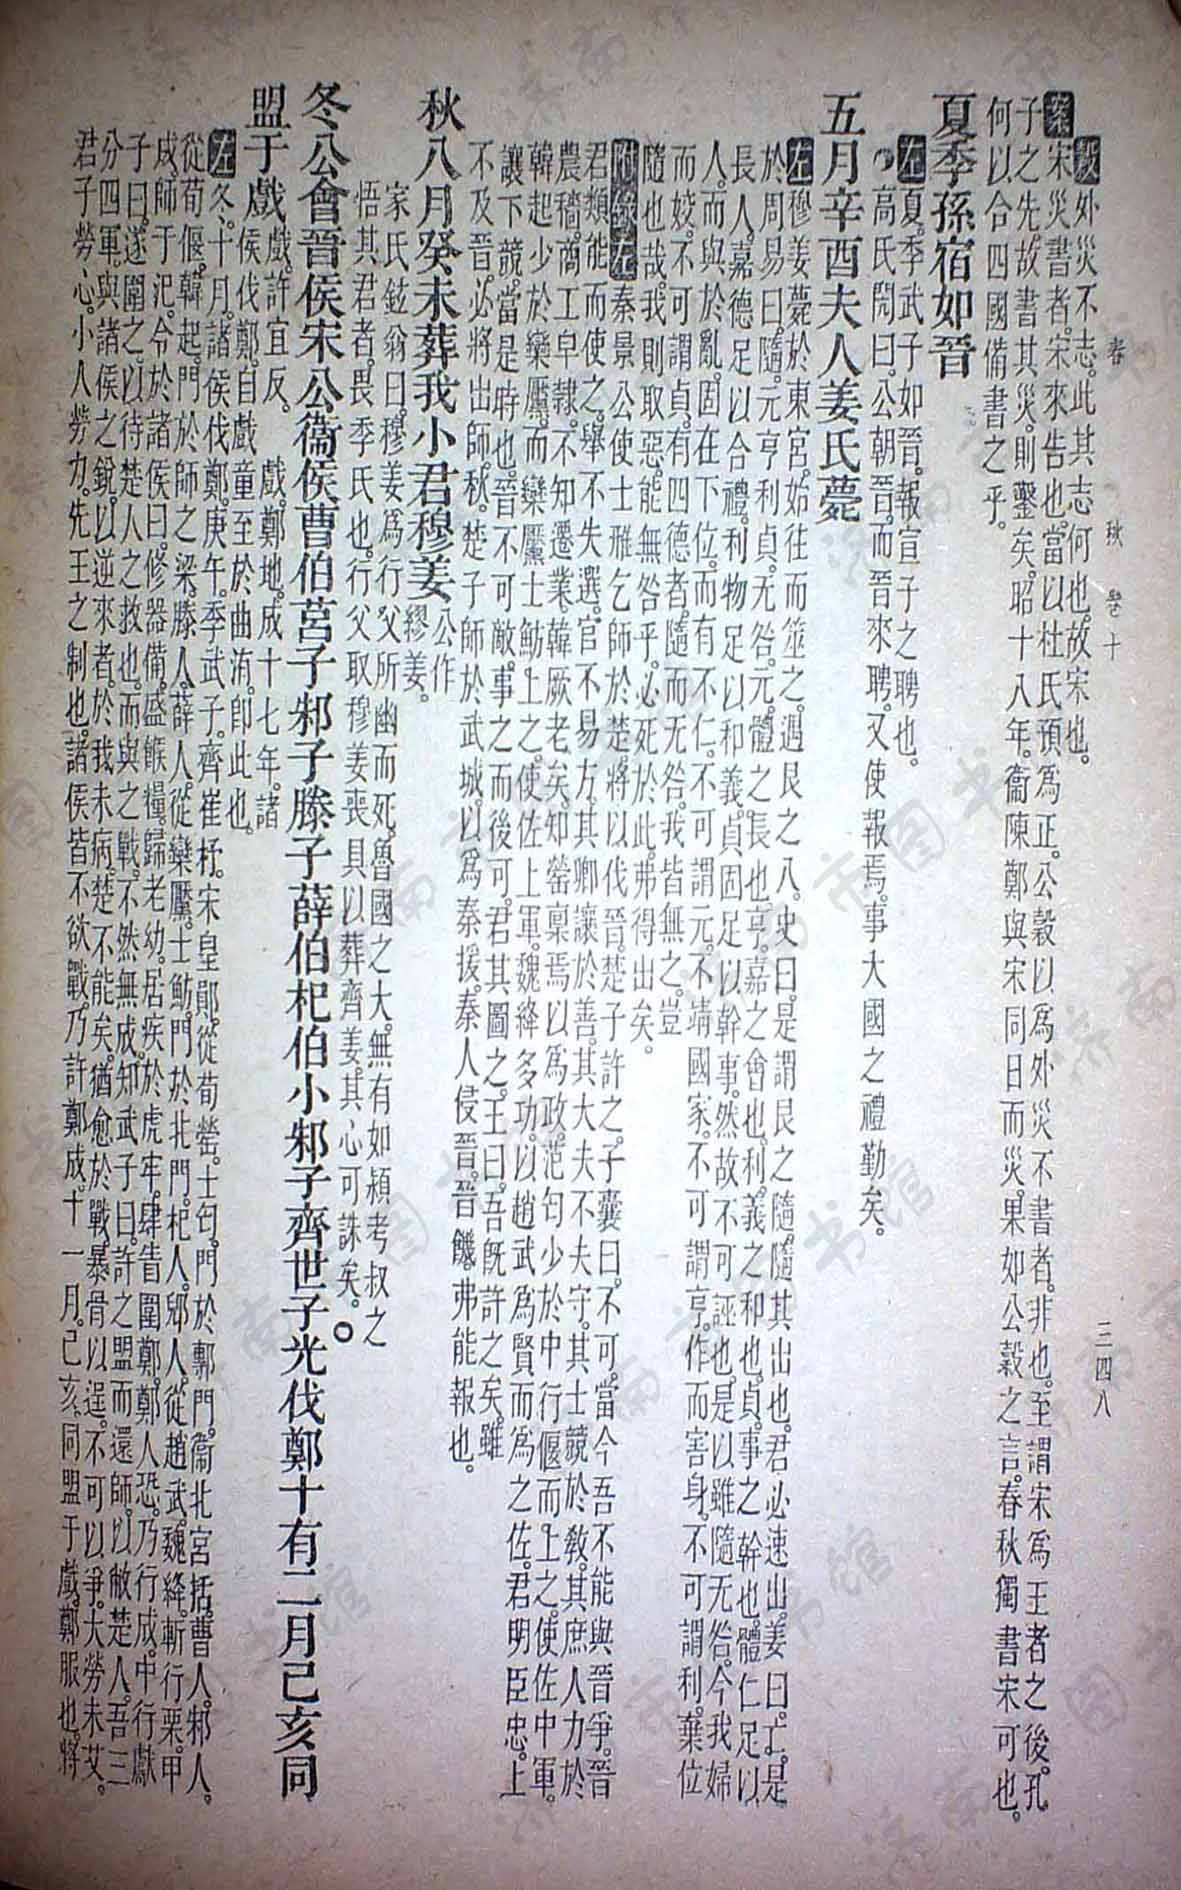 春　秋　卷十　三四八
穀外災不志。此其志何也。故宋也。
案宋災書者。宋來告也。當以杜氏預爲正。公穀以爲外災不書者。非也。至謂宋爲王者之後。孔
子之先。故書其災。則鑿矣。昭十八年。衞陳鄭與宋同日而災。果如公穀之言。春秋獨書宋可也。
何以合四國備書之乎。
夏季孫宿如晉
左夏。季武子如晉。報宣子之聘也。
高氏閌曰。公朝晉。而晉來聘。又使報焉。事大國之禮勤矣。
五月辛酉夫人姜氏薨
左穆姜薨於東宮。始往而筮之。遇艮之八。史曰。是謂艮之隨。隨其出也。君必速出。姜曰。亡。是
於周易曰。隨。元亨利貞。无咎。元。體之長也。亨。嘉之會也。利。義之和也。貞。事之幹也。體仁足以
長人。嘉德足以合禮。利物足以和義。貞固足以幹事。然故不可誣也。是以雖隨无咎。今我婦
人。而與於亂。固在下位。而有不仁。不可謂元。不靖國家。不可謂亨。作而害身。不可謂利。棄位
而姣。不可謂貞。有四德者。隨而无咎。我皆無之。豈
隨也哉。我則取惡。能無咎乎。必死於此。弗得出矣。
附錄左秦景公使士雃乞師於楚。將以伐晉。楚子許之。子囊曰。不可。當今吾不能與晉爭。晉
君類能而使之。舉不失選。官不易方。其卿讓於善。其大夫不失守。其士競於敎。其庶人力於
農穡。商工皁隸。不知遷業。韓厥老矣。知罃稟焉以爲政。范匄少於中行偃而上之。使佐中軍。
韓起少於欒黶。而欒黶士魴上之。使佐上軍。魏絳多功。以趙武爲賢而爲之佐。君明臣忠。上
讓下競。當是時也。晉不可敵。事之而後可。君其圖之。王曰。吾旣許之矣。雖
不及晉。必將出師。秋。楚子師於武城。以爲秦援。秦人侵晉。晉饑。弗能報也。
秋八月癸未葬我小君穆姜公作繆姜。
家氏鉉翁曰。穆姜爲行父所幽而死。魯國之大。無有如潁考叔之
悟其君者。畏季氏也。行父取穆姜喪具以葬齊姜。其心可誅矣。
冬公會晉侯宋公衞侯曹伯莒子邾子滕子薛伯杞伯小邾子齊世子光伐鄭十有二月己亥同
盟于戲戲。許宜反。戲。鄭地。成十七年。諸侯伐鄭。自戲童至於曲洧。卽此也。
左冬。十月。諸侯伐鄭。庚午。季武子。齊崔杼。宋皇鄖。從荀罃。士匄。門於鄟門。衞北宮括。曹人。邾人。
從荀偃。韓起。門於師之梁。滕人。薛人。從欒黶。士魴。門於北門。杞人。郳人。從趙武。魏絳。斬行栗。甲
戌。師于汜。令於諸侯曰。修器備。盛餱糧。歸老幼。居疾於虎牢。肆眚圍鄭。鄭人恐。乃行成。中行獻
子曰。遂圍之。以待楚人之救也。而與之戰。不然無成。知武子曰。許之盟而還師。以敝楚人。吾三
分四軍。與諸侯之銳。以逆來者。於我未病。楚不能矣。猶愈於戰。暴骨以逞。不可以爭。大勞未艾。
君子勞心。小人勞力。先王之制也。諸侯皆不欲戰。乃許鄭成。十一月。己亥。同盟于戲。鄭服也。將